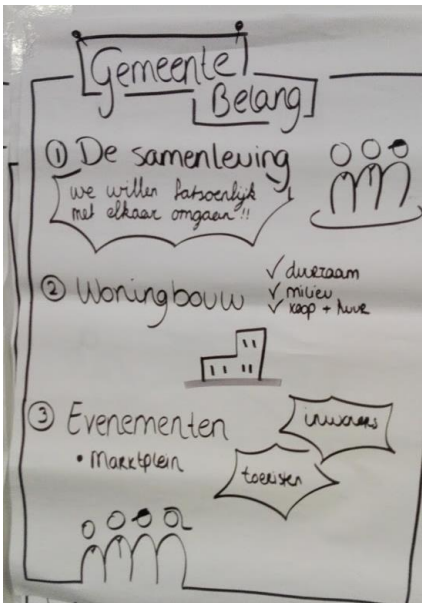 Gemeente
Belang
① De samenleving
we willen fatsoenlijk
met elkaar omgaan!!
② Woningbouw
✓ duurzaam
✓ milieu
✓ koop + huur
③ Evenementen
• Marktplein
inwoners
toeristen